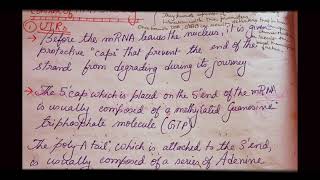 ① UTRs
Before the mRNA leaves the nucleus, it is given
protective "caps" that prevent the end of the
strand from degrading during its journey.
→ The 5' cap which is placed on the 5' end of the mRNA
is usually composed of a methylated Guanosine
triphosphate molecule (GTP)
The 'poly-A tail', which is attached to the 3' end,
is usually composed of a series of Adenine